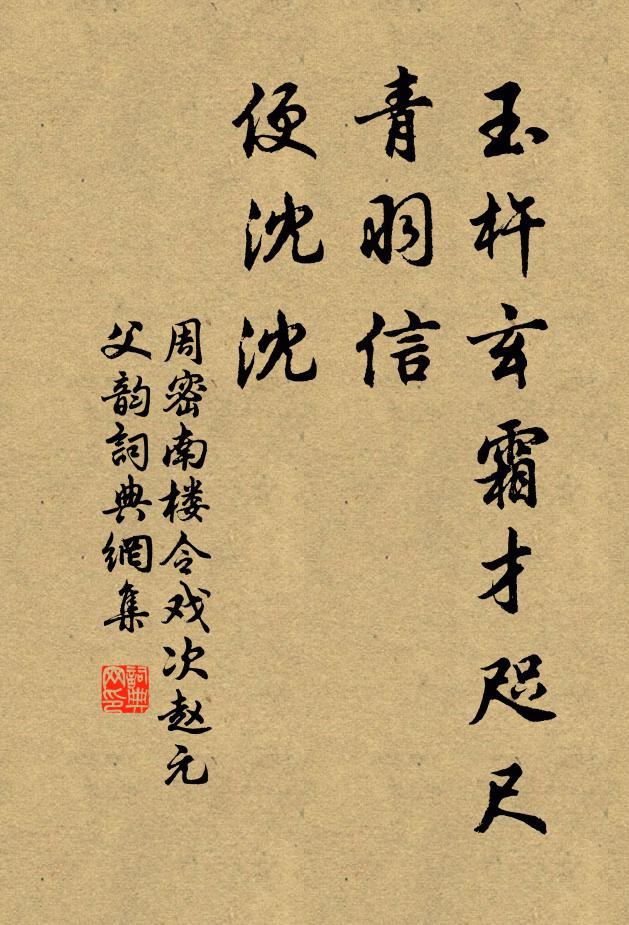 玉杵玄霜才咫尺
青羽信
便沈沈
周密南楼令戏次赵元
父韵詞典網集
詞典网印